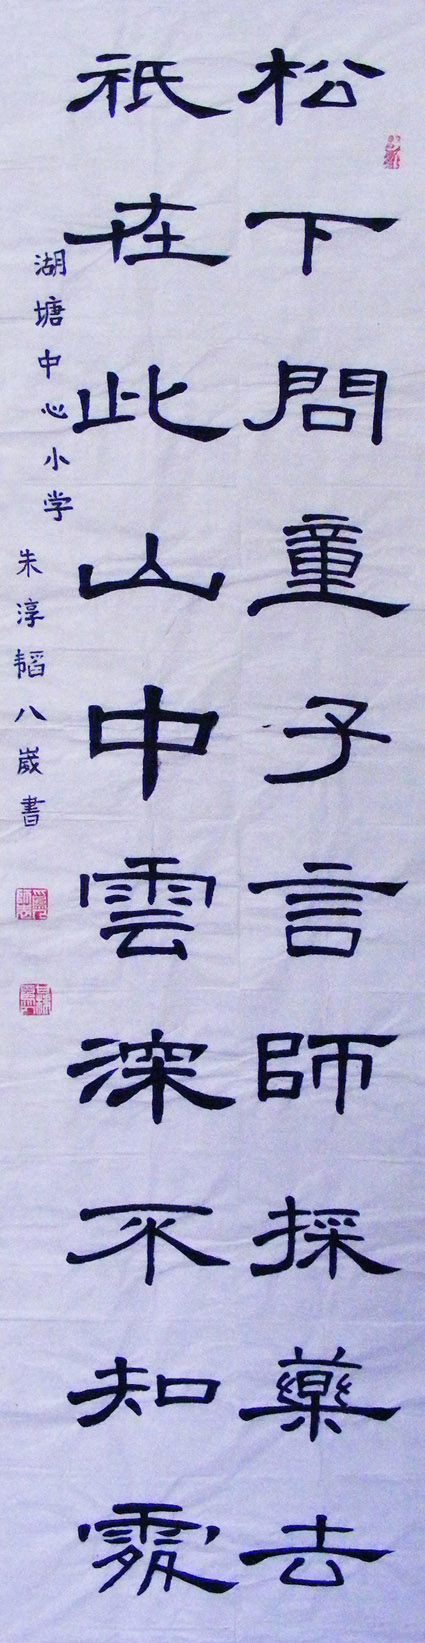 松下問童子言師採藥去
祇在此山中雲深不知處
湖塘中心小学
朱淳韬八歲書